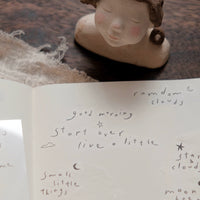 random
clouds
good morning
start over
live a little
small
little
things
star
moon